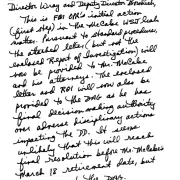 Director Wray and Deputy Director Bowdich,
This is FBI OPR's initial action
(first step) in the McCabe WSJ leak
matter. Pursuant to standard procedures
the attached letter (but not the
enclosed Report of Investigation) will
now be provided to Mr. McCabe
and his attorneys. The enclosed
letter and ROI will now also be
provided to the DAG as he has
final decision-making authority
over adverse disciplinary actions
impacting the DD. It seems
unlikely that this will reach
final resolution before Mr. McCabe's
March 18 retirement date, but
the DAG.